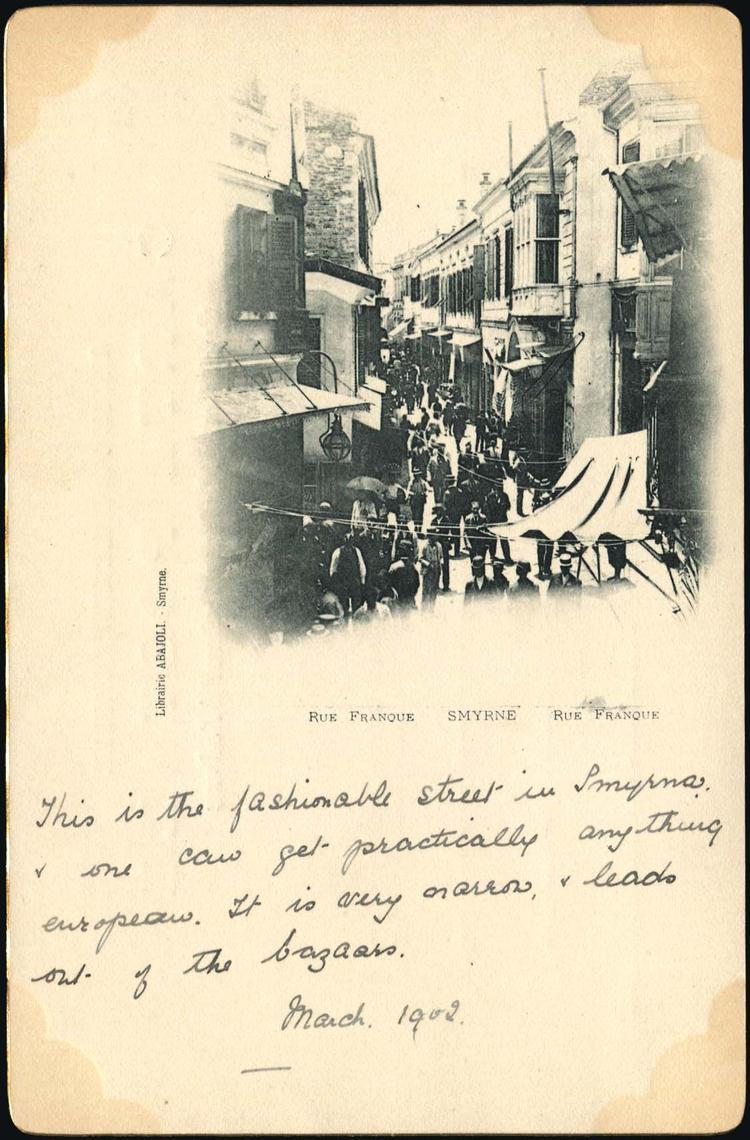 Librairie ABAJOLI. - Smyrne.
RUE FRANQUE SMYRNE RUE FRANQUE
This is the fashionable street in Smyrna.
& one can get practically anything
european. It is very narrow, & leads
out of the bazaars.
March. 1902.